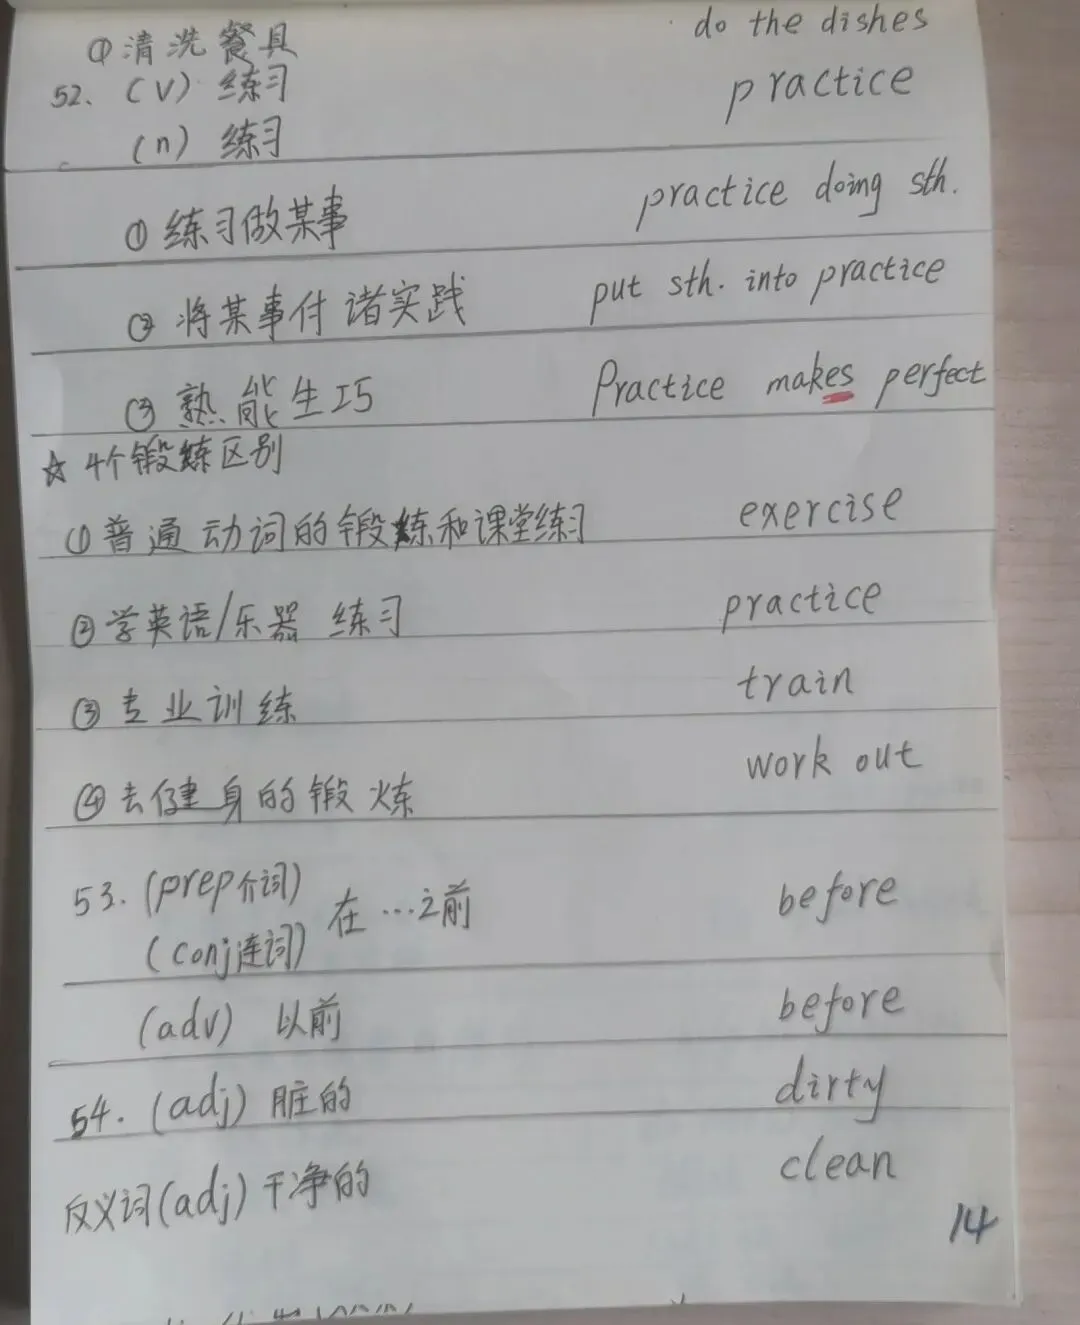 ①清洗餐具 do the dishes
52、(v) 练习 practice
(n) 练习
①练习做某事 practice doing sth.
②将某事付诸实践 put sth. into practice
③熟能生巧 Practice makes perfect
☆ 4个锻炼区别
①普通动词的锻炼和课堂练习 exercise
②学英语/乐器 练习 practice
③专业训练 train
④去健身的锻炼 work out
53.(prep介词) 在…之前 before
(conj连词)
(adv) 以前 before
54.(adj) 脏的 dirty
反义词(adj)干净的 clean
14